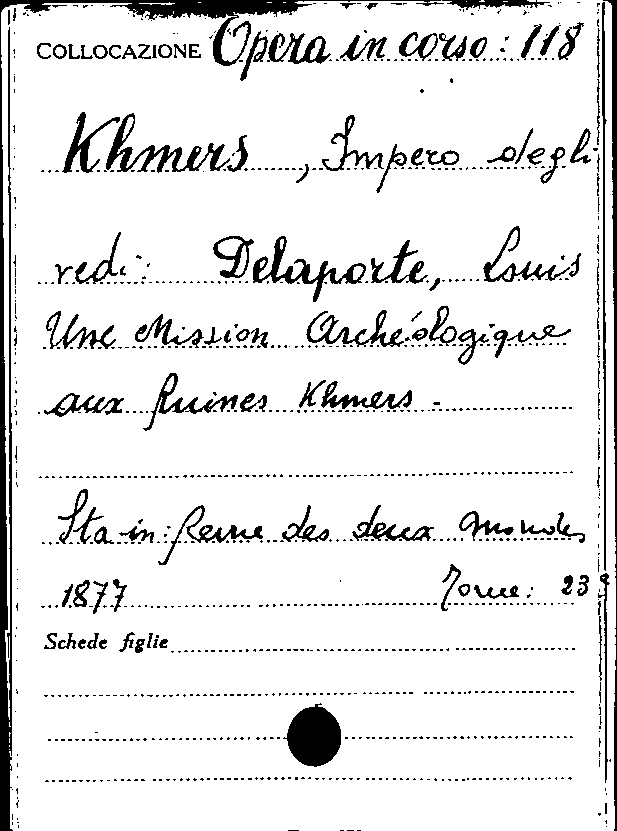 COLLOCAZIONE Opera in corso: 118
Khmers, Impero degli
vedi: Delaporte, Louis
Une Mission Archéologique
aux Ruines Khmers -
Sta in: Revue des deux Mondes
1877 Tome: 23
Schede figlie